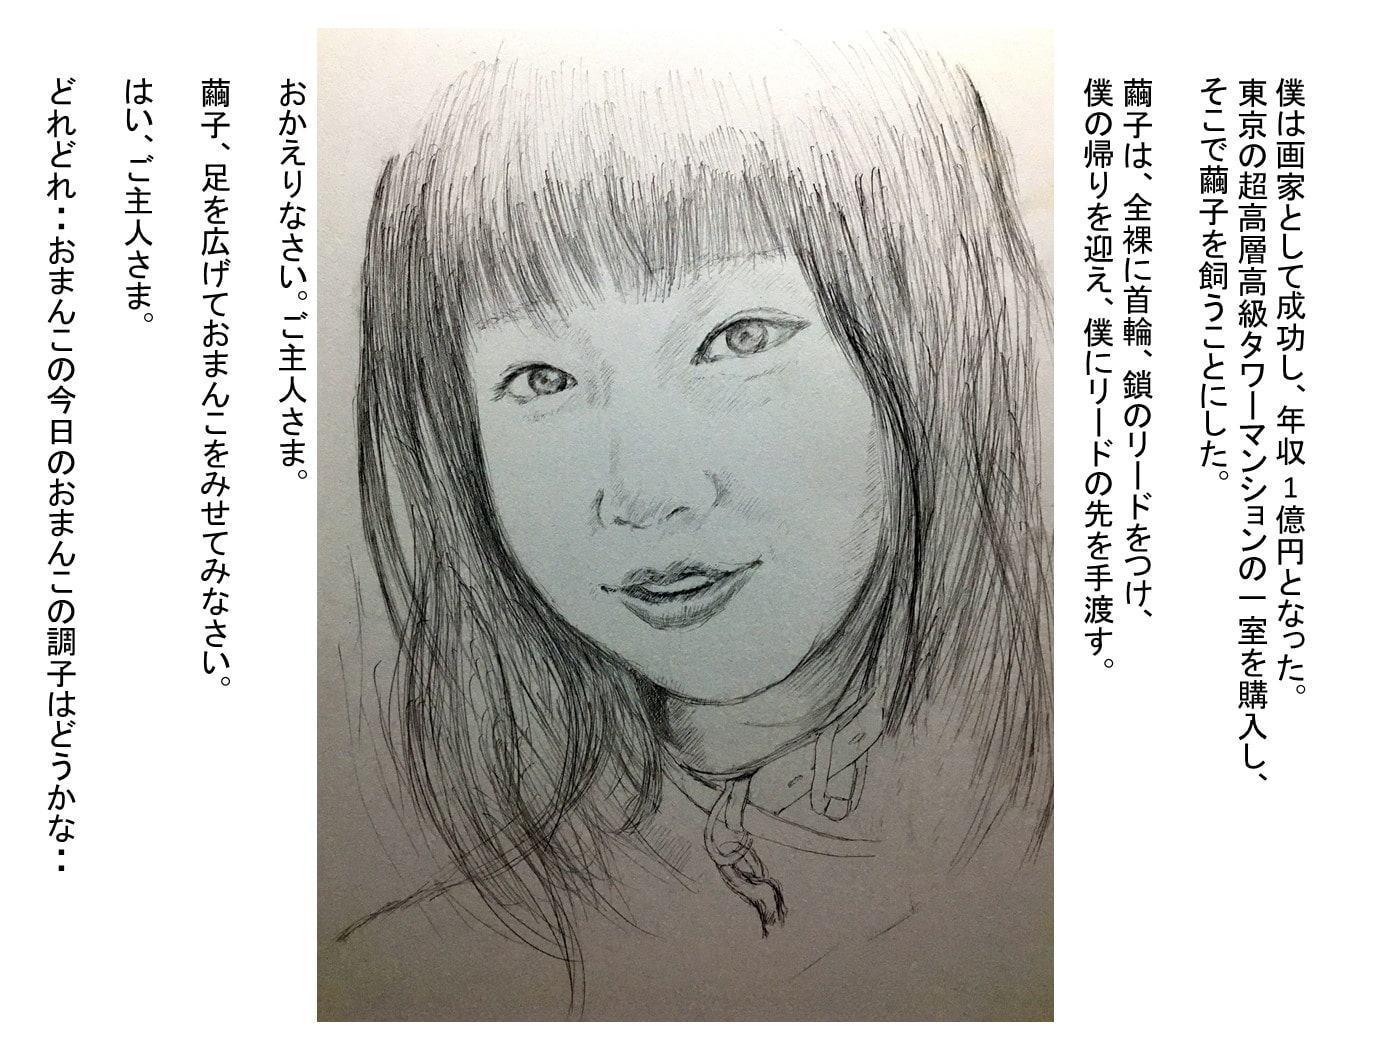 僕は画家として成功し、年収１億円となった。
東京の超高層高級タワーマンションの一室を購入し、
そこで繭子を飼うことにした。
繭子は、全裸に首輪、鎖のリードをつけ、
僕の帰りを迎え、僕にリードの先を手渡す。
おかえりなさい。ご主人さま。
繭子、足を広げておまんこをみせてみなさい。
はい、ご主人さま。
どれどれ・・おまんこの今日のおまんこの調子はどうかな・・